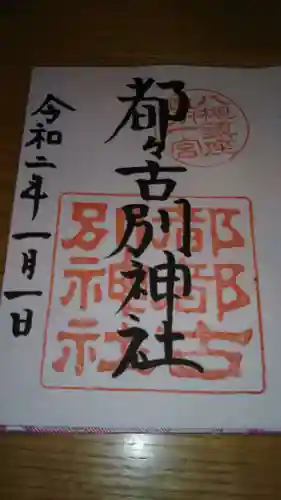 八槻鎮座
一宮
都々古別神社
都都古
別神社
令和二年一月一日